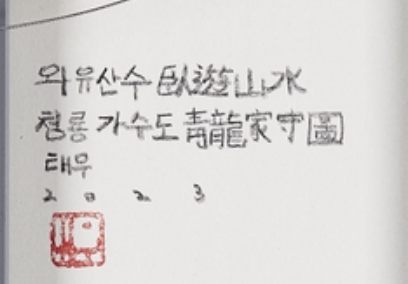 와유산수 臥遊山水
청룡 가수도 靑龍家守圖
태우
2023